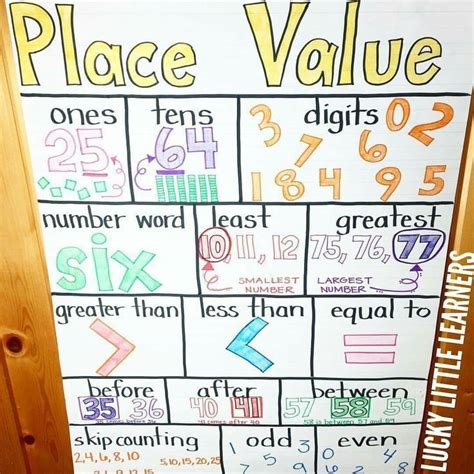 Place Value
ones tens digits
25 64 3 7 9 0 2 6 1 8 4 9 5
number word least greatest
six 10, 11, 12 75, 76, 77
SMALLEST NUMBER LARGEST NUMBER
greater than less than equal to
> < =
before after between
35 36 40 41 57 58 59
35 comes before 36 41 comes after 40 58 is between 57 & 59
skip counting odd even
2, 4, 6, 8, 10 5, 10, 15, 20, 25
LUCKY LITTLE LEARNERS